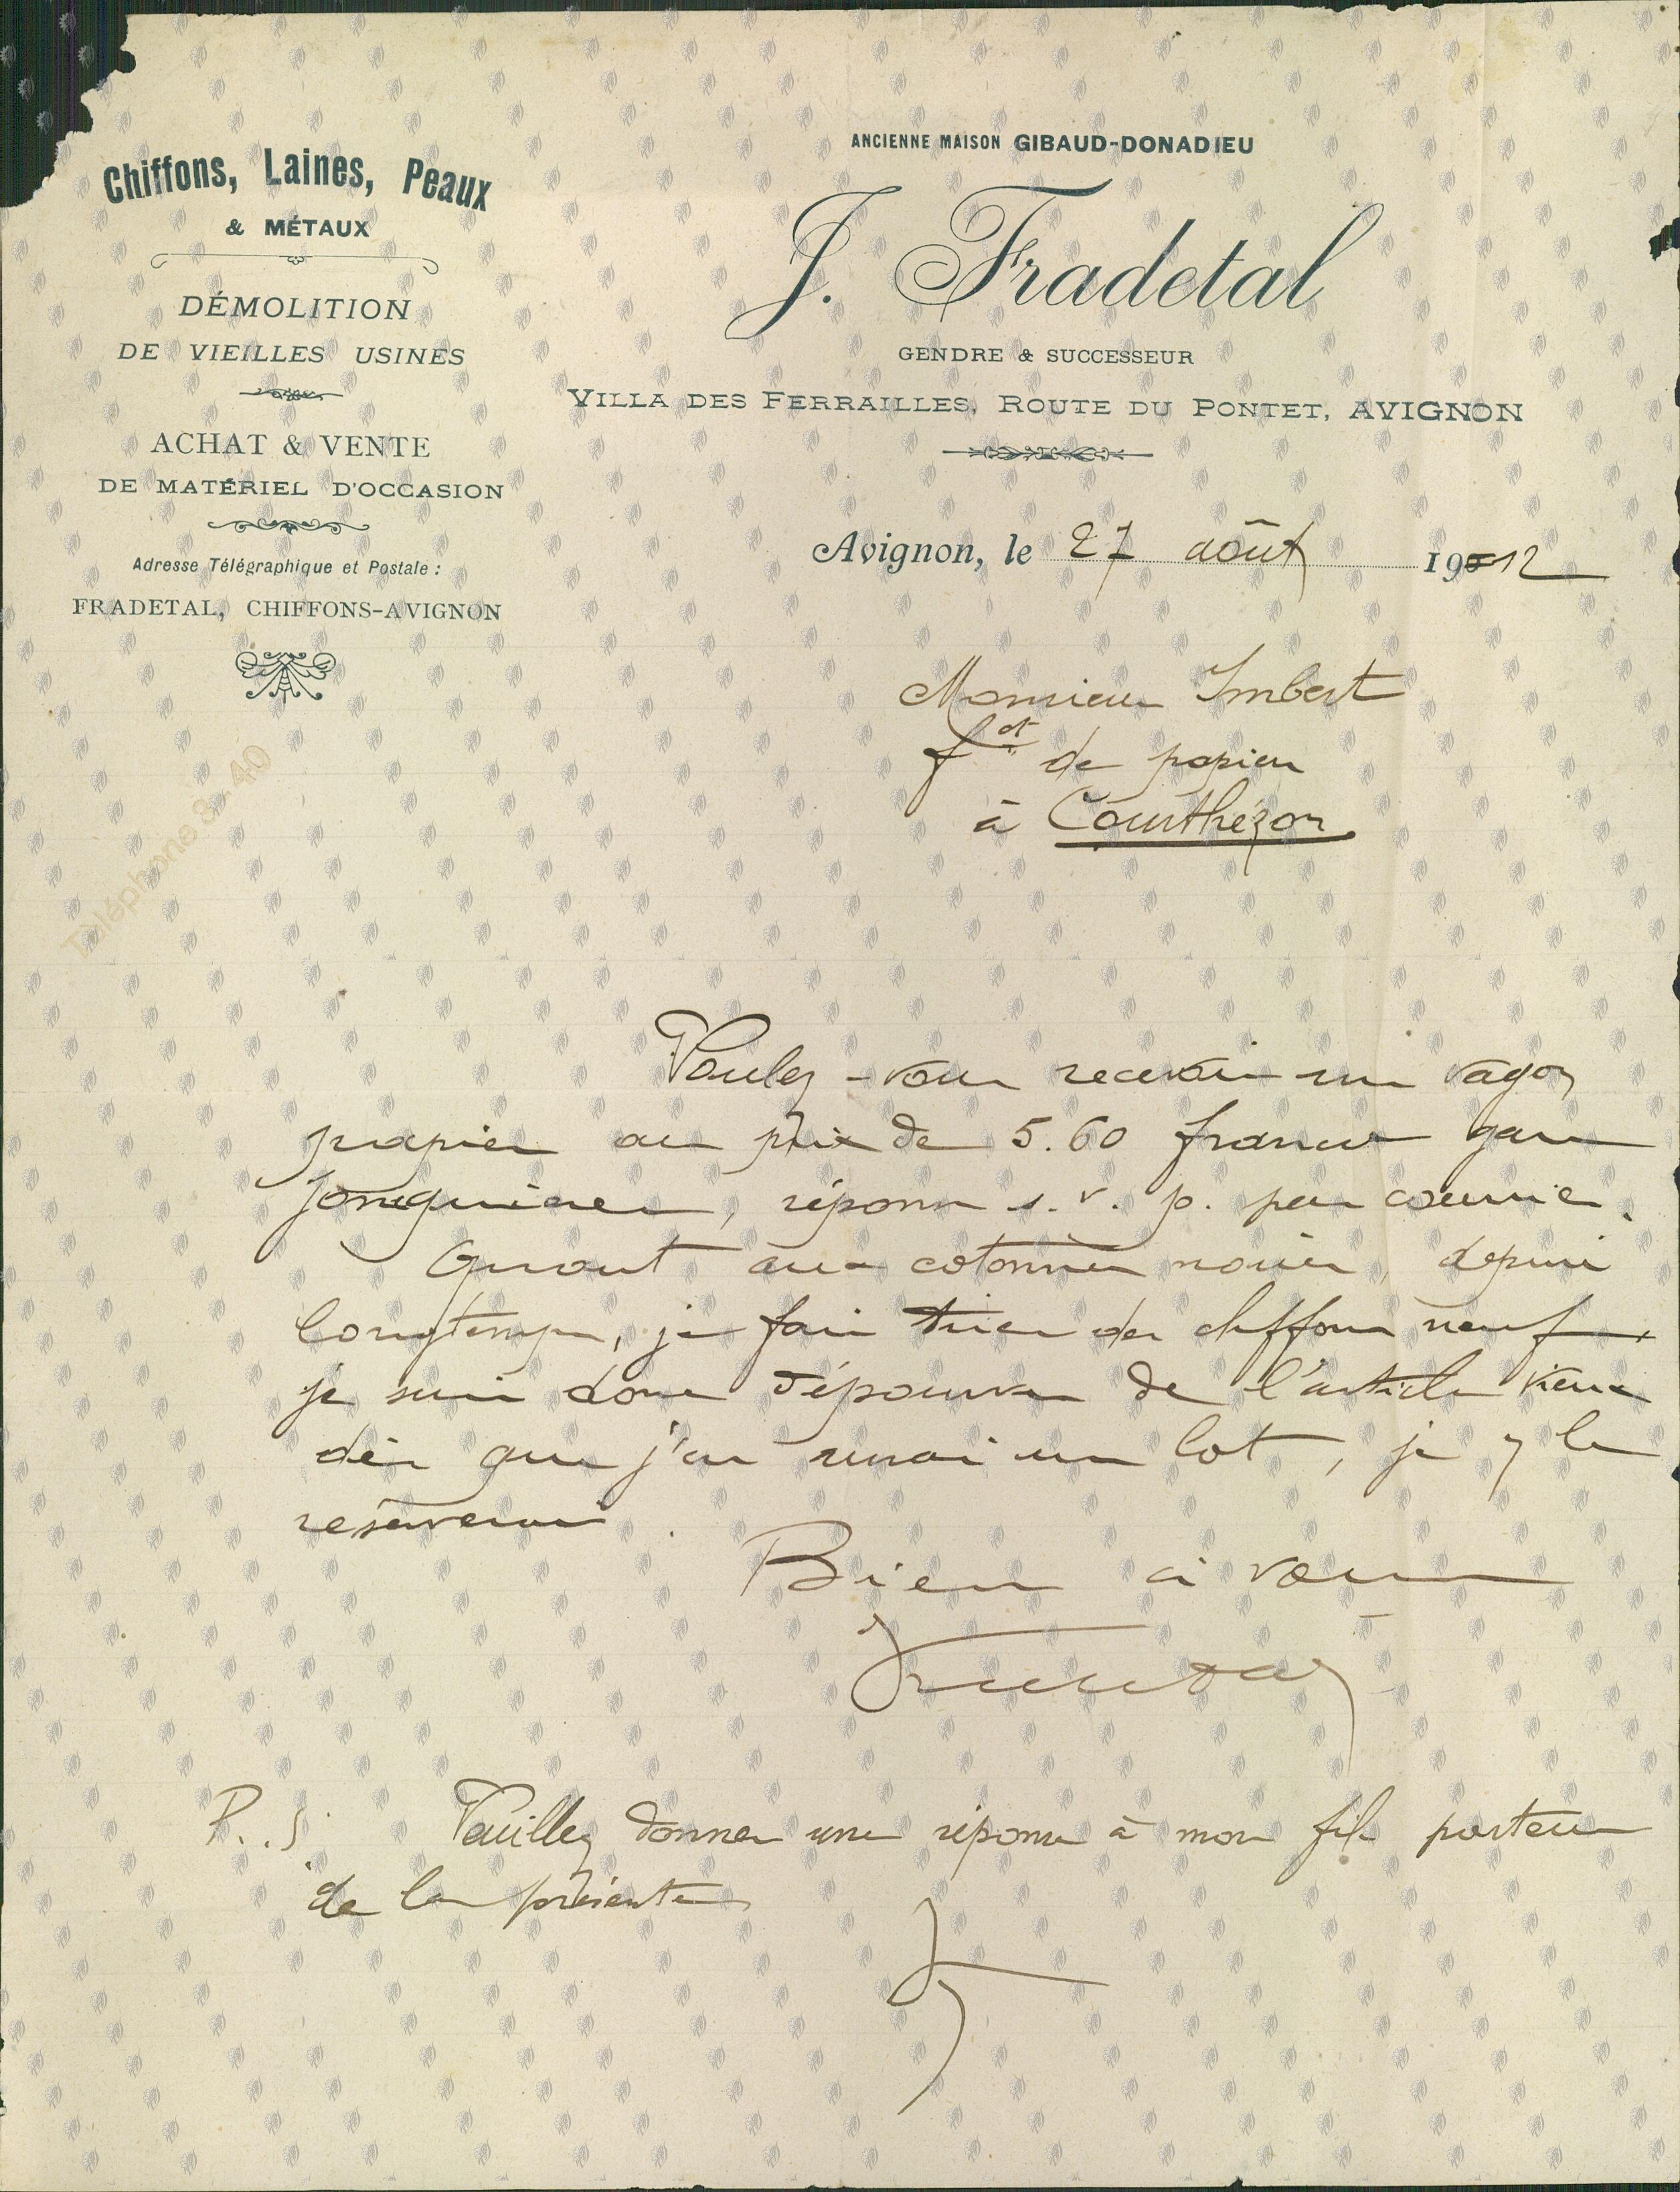 Chiffons, Laines, Peaux
& MÉTAUX
DÉMOLITION
DE VIEILLES USINES
ACHAT & VENTE
DE MATÉRIEL D'OCCASION
Adresse Télégraphique et Postale :
FRADETAL, CHIFFONS-AVIGNON
Téléphone 3-40
ANCIENNE MAISON GIBAUD-DONADIEU
J. Fradetal
GENDRE & SUCCESSEUR
VILLA DES FERRAILLES, ROUTE DU PONTET, AVIGNON
Avignon, le 27 août 1912
Monsieur Imbert
fnt de papier
à Courthézon
Voulez-vous recevoir un vagon
papier au prix de 5.60 franco gare
Jonquières, réponse s. v. p. par courrier.
Quant aux cotonnes noires, depuis
longtemps, je fais trier des chiffons neufs,
je suis donc dépourvu de l'article vieux
dès que j'en aurai un lot, je le
réserverai.
Bien à vous
Fradetal
P.S. Veuillez donner une réponse à mon fils porteur
de la présente